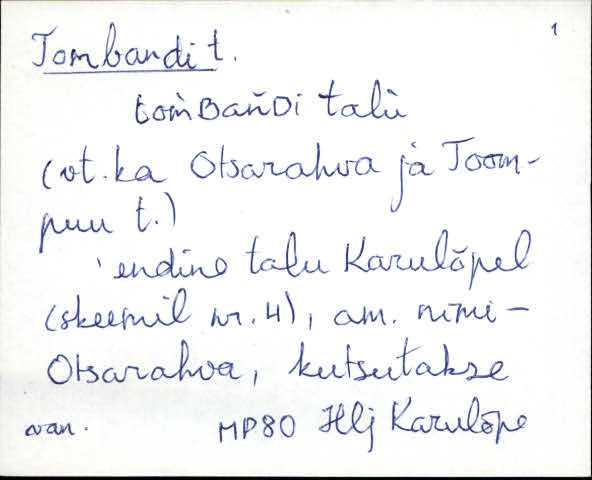 1
Tombandi t.
tom̀Ban̆Di talù
(vt. ka Otsarahva ja Toom-
puu t.)
'endine talu Karulõpel
(skeemil nr. 4), am. nimi -
Otsarahva, kutsutakse
van. MP80 Hlj Karulõpe